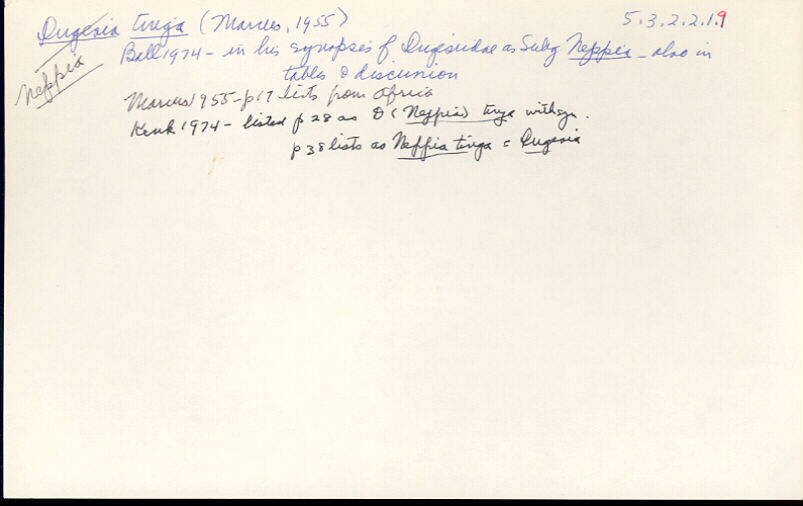 Dugesia tinga (Marcus, 1955) 5.3.2.2.1.9
Neppia
Ball 1974 - in his synopses of Dugesiidae as Subg Neppia - also in
tables & discussion
Marcus 1955 - p17 lists from Africa
Kenk 1974 - listed p 28 as D (Neppia) tinga with syn.
p 38 lists as Neppia tinga = Dugesia